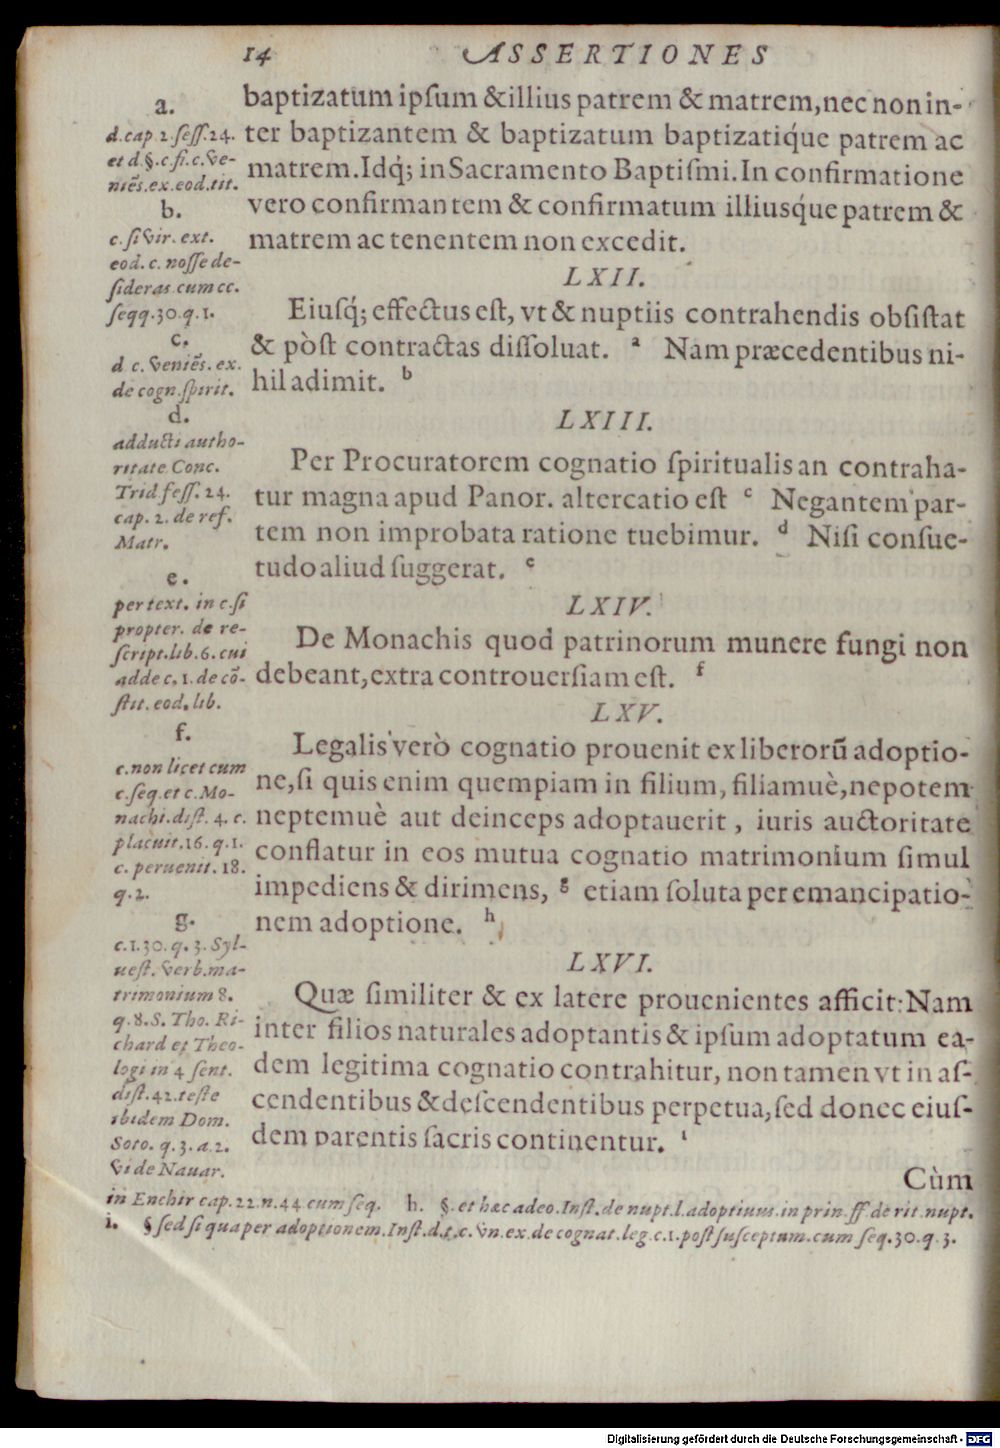 14 ASSERTIONES
baptizatum ipſum & illius patrem & matrem, nec non in-
ter baptizantem & baptizatum baptizatiq́ue patrem ac
matrem. Idq́; in Sacramento Baptiſmi. In confirmatione
vero confirmantem & confirmatum illiusq́ue patrem &
matrem ac tenentem non excedit.
LXII.
Eiuſq́; effectus eſt, vt & nuptiis contrahendis obſiſtat
& pòſt contractas diſſoluat. a Nam præcedentibus ni-
hil adimit. b
LXIII.
Per Procuratorem cognatio ſpiritualis an contraha-
tur magna apud Panor. altercatio eſt c Negantem par-
tem non improbata ratione tuebimur. d Niſi conſue-
tudo aliud ſuggerat. e
LXIV.
De Monachis quod patrinorum munere fungi non
debeant, extra controuerſiam eſt. f
LXV.
Legalis verò cognatio prouenit ex liberorū adoptio-
ne, ſi quis enim quempiam in filium, filiamuè, nepotem
neptemuè aut deinceps adoptauerit, iuris auctoritate
conflatur in eos mutua cognatio matrimonium ſimul
impediens & dirimens, g etiam ſoluta per emancipatio-
nem adoptione. h
LXVI.
Quæ ſimiliter & ex latere prouenientes afficit: Nam
inter filios naturales adoptantis & ipſum adoptatum ea-
dem legitima cognatio contrahitur, non tamen vt in aſ-
cendentibus & deſcendentibus perpetua, ſed donec eiuſ-
dem parentis ſacris continentur. i
Cùm
a.
d. cap. 2. ſeſſ. 24.
et d. §. c. ſi. c. Ve-
niēs. ex. eod. tit.
b.
c. ſi vir. ext.
eod. c. noſſe de-
ſideras cum cc.
ſeqq. 30. q. 1.
c.
d c. Veniēs. ex.
de cogn. ſpirit.
d.
adducti autho-
ritate Conc.
Trid ſeſſ. 24.
cap. 2. de ref.
Matr.
e.
per text. in c. ſi
propter. de re-
ſcript. lib. 6. cui
adde c. 1. de cō-
ſtit. eod. lib.
f.
c. non licet cum
c. ſeq. et c. Mo-
nachi. diſt. 4. c.
placuit. 16. q. 1.
c. peruenit. 18.
q. 2.
g.
c. 1. 30. q. 3. Syl-
ueſt. Verb. ma-
trimonium 8.
q. 8. S. Tho. Ri-
chard et Theo-
logi in 4 ſent.
diſt. 42. teſte
ibidem Dom.
Soto. q. 3. a. 2.
Vide Nauar.
in Enchir cap. 22. n. 44. cum ſeq. h. §. et hæc adeo. Inſt. de nupt. l. adoptiuus. in prin. ff de rit. nupt.
i. § ſed ſi qua per adoptionem. Inſt. d. t. c. Vn. ex. de cognat. leg. c. 1. poſt ſuſceptum. cum ſeq. 30. q. 3.
Digitalisierung gefördert durch die Deutsche Forschungsgemeinschaft - DFG